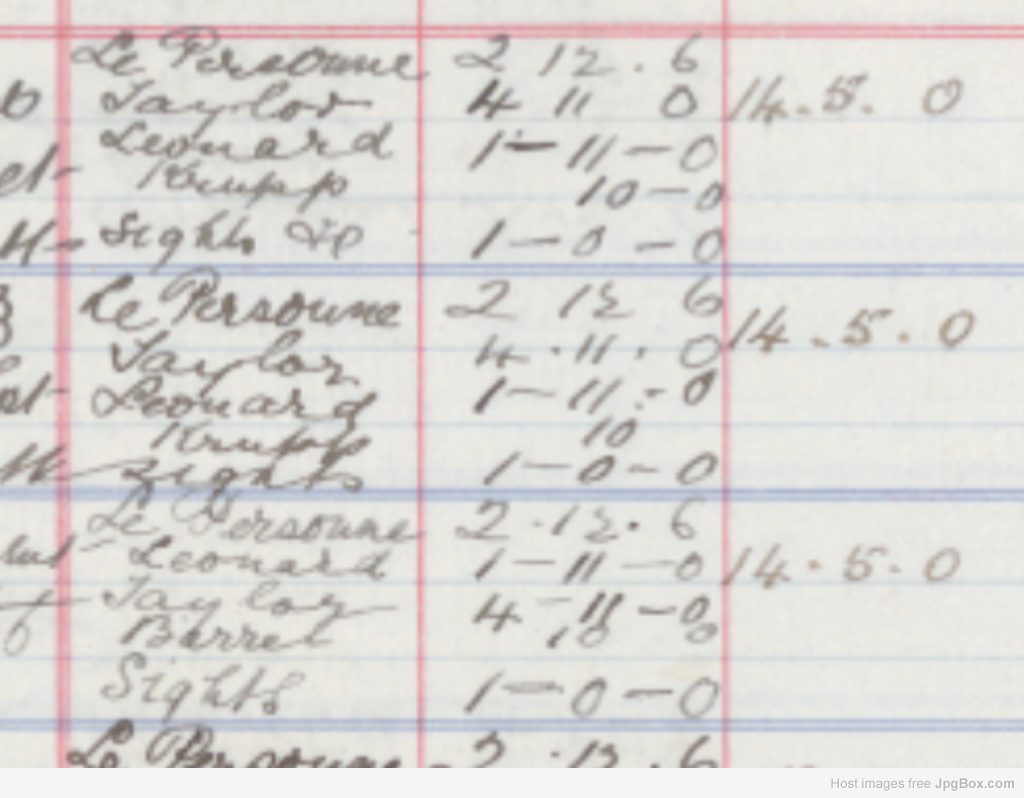 Le Personne 2 12 . 6
Taylor 4 11 0 14 . 5 . 0
Leonard 1 — 11 — 0
Krupp 10 — 0
Sights &c 1 — 0 — 0
Le Personne 2 12 6
Taylor 4 . 11 . 0 14 . 5 . 0
Leonard 1 — 11 . - 0
Krupp 10
Sights 1 — 0 - 0
Le Personne 2 . 12 . 6
Leonard 1 — 11 — 0 14 . 5 . 0
Taylor 4 — 11 — 0
Barrel 10 0
Sights 1 — 0 — 0
Le Personne 2 . 12 . 6
Host images free JpgBox.com